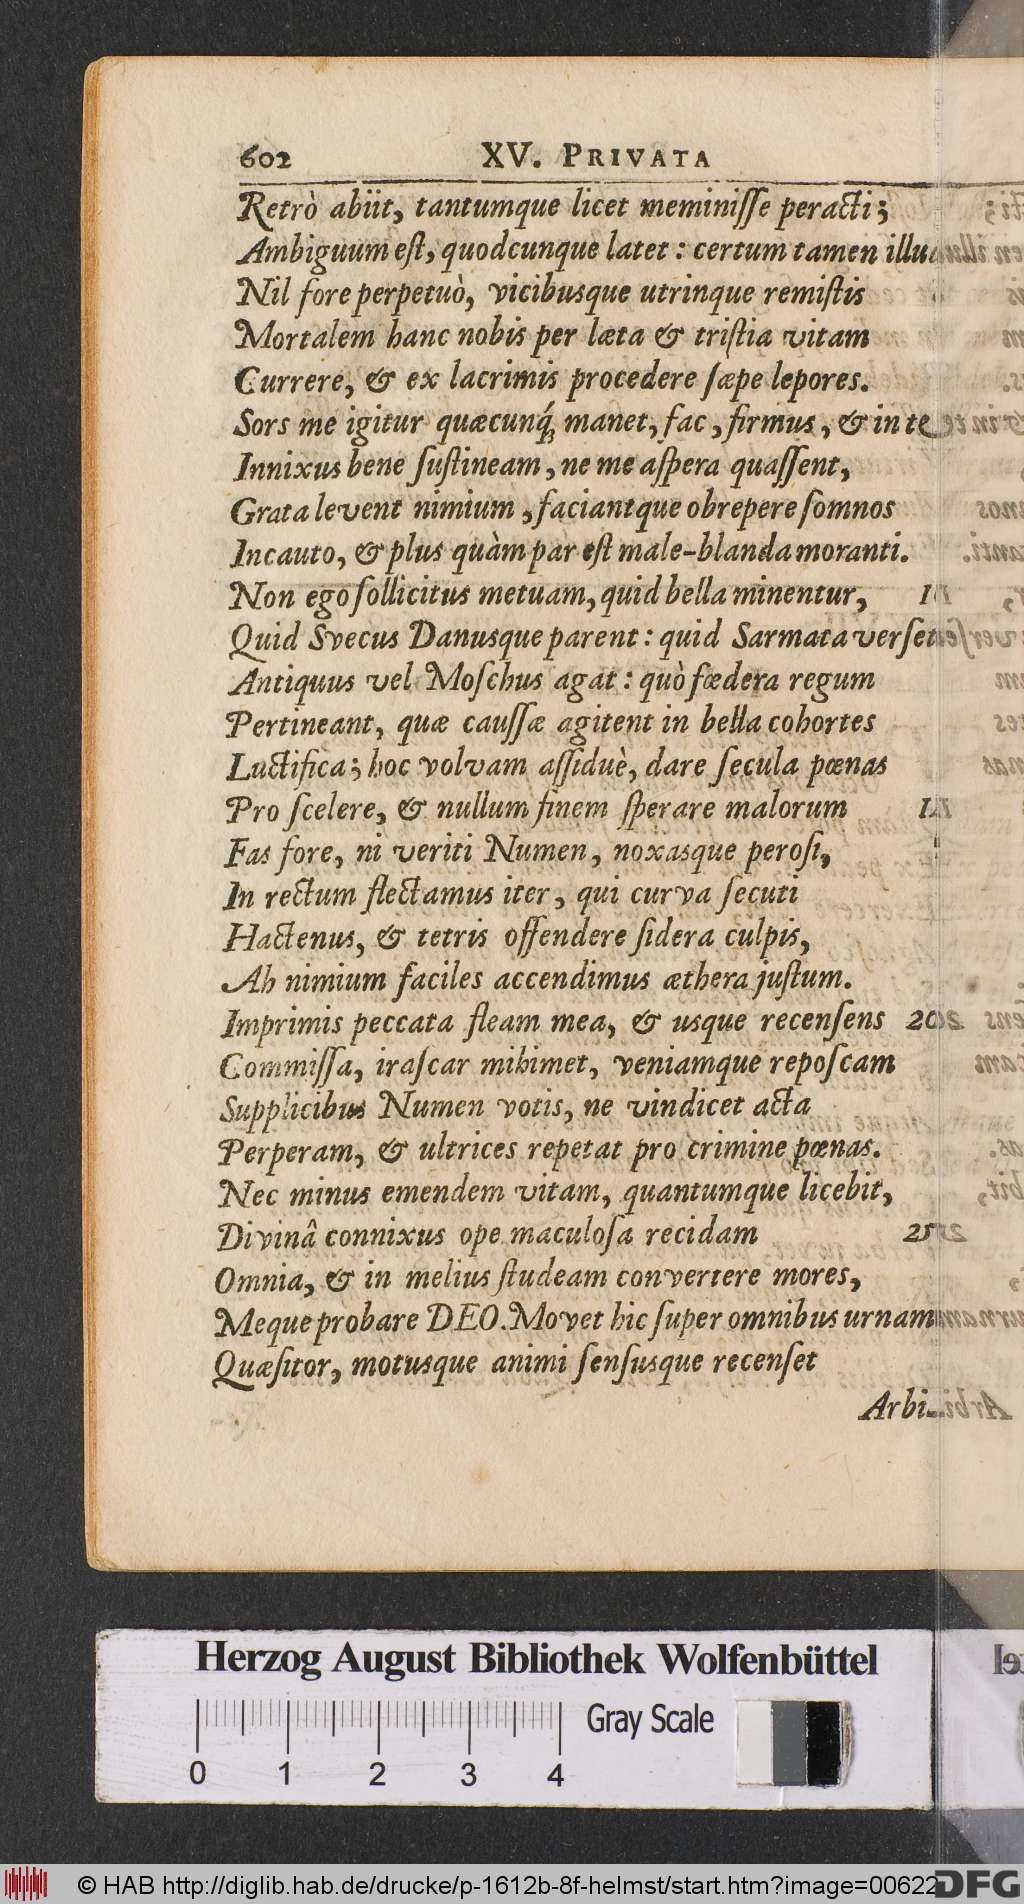 602 XV. PRIVATA
Retrò abiit, tantumque licet meminiſſe peracti;
Ambiguum eſt, quodcunque latet: certum tamen illud
Nil fore perpetuò, vicibusque utrinque remiſtis
Mortalem hanc nobis per læta & triſtia vitam
Currere, & ex lacrimis procedere ſæpe lepores.
Sors me igitur quæcunq́; manet, fac, firmus, & in te
Innixus bene ſuſtineam, ne me aſpera quaſſent,
Grata levent nimium, faciantque obrepere ſomnos
Incauto, & plus quàm par eſt male-blanda moranti.
Non ego ſollicitus metuam, quid bella minentur,
Quid Svecus Danusque parent: quid Sarmata verſet
Antiquus vel Moſchus agat: quò fœdera regum
Pertineant, quæ cauſſæ agitent in bella cohortes
Luctifica; hoc volvam aſſiduè, dare ſecula pœnas
Pro ſcelere, & nullum finem ſperare malorum
Fas fore, ni veriti Numen, noxasque peroſi,
In rectum flectamus iter, qui curva ſecuti
Hactenus, & tetris offendere ſidera culpis,
Ah nimium faciles accendimus æthera juſtum.
Imprimis peccata fleam mea, & usque recenſens 20
Commiſſa, iraſcar mihimet, veniamque repoſcam
Supplicibus Numen votis, ne vindicet acta
Perperam, & ultrices repetat pro crimine pœnas.
Nec minus emendem vitam, quantumque licebit,
Divinâ connixus ope maculoſa recidam 25
Omnia, & in melius ſtudeam convertere mores,
Meque probare DEO. Movet hic ſuper omnibus urnam
Quæſitor, motusque animi ſenſusque recenſet
Arbi-
Herzog August Bibliothek Wolfenbüttel
Gray Scale
0 1 2 3 4
© HAB http://diglib.hab.de/drucke/p-1612b-8f-helmst/start.htm?image=00622
DFG